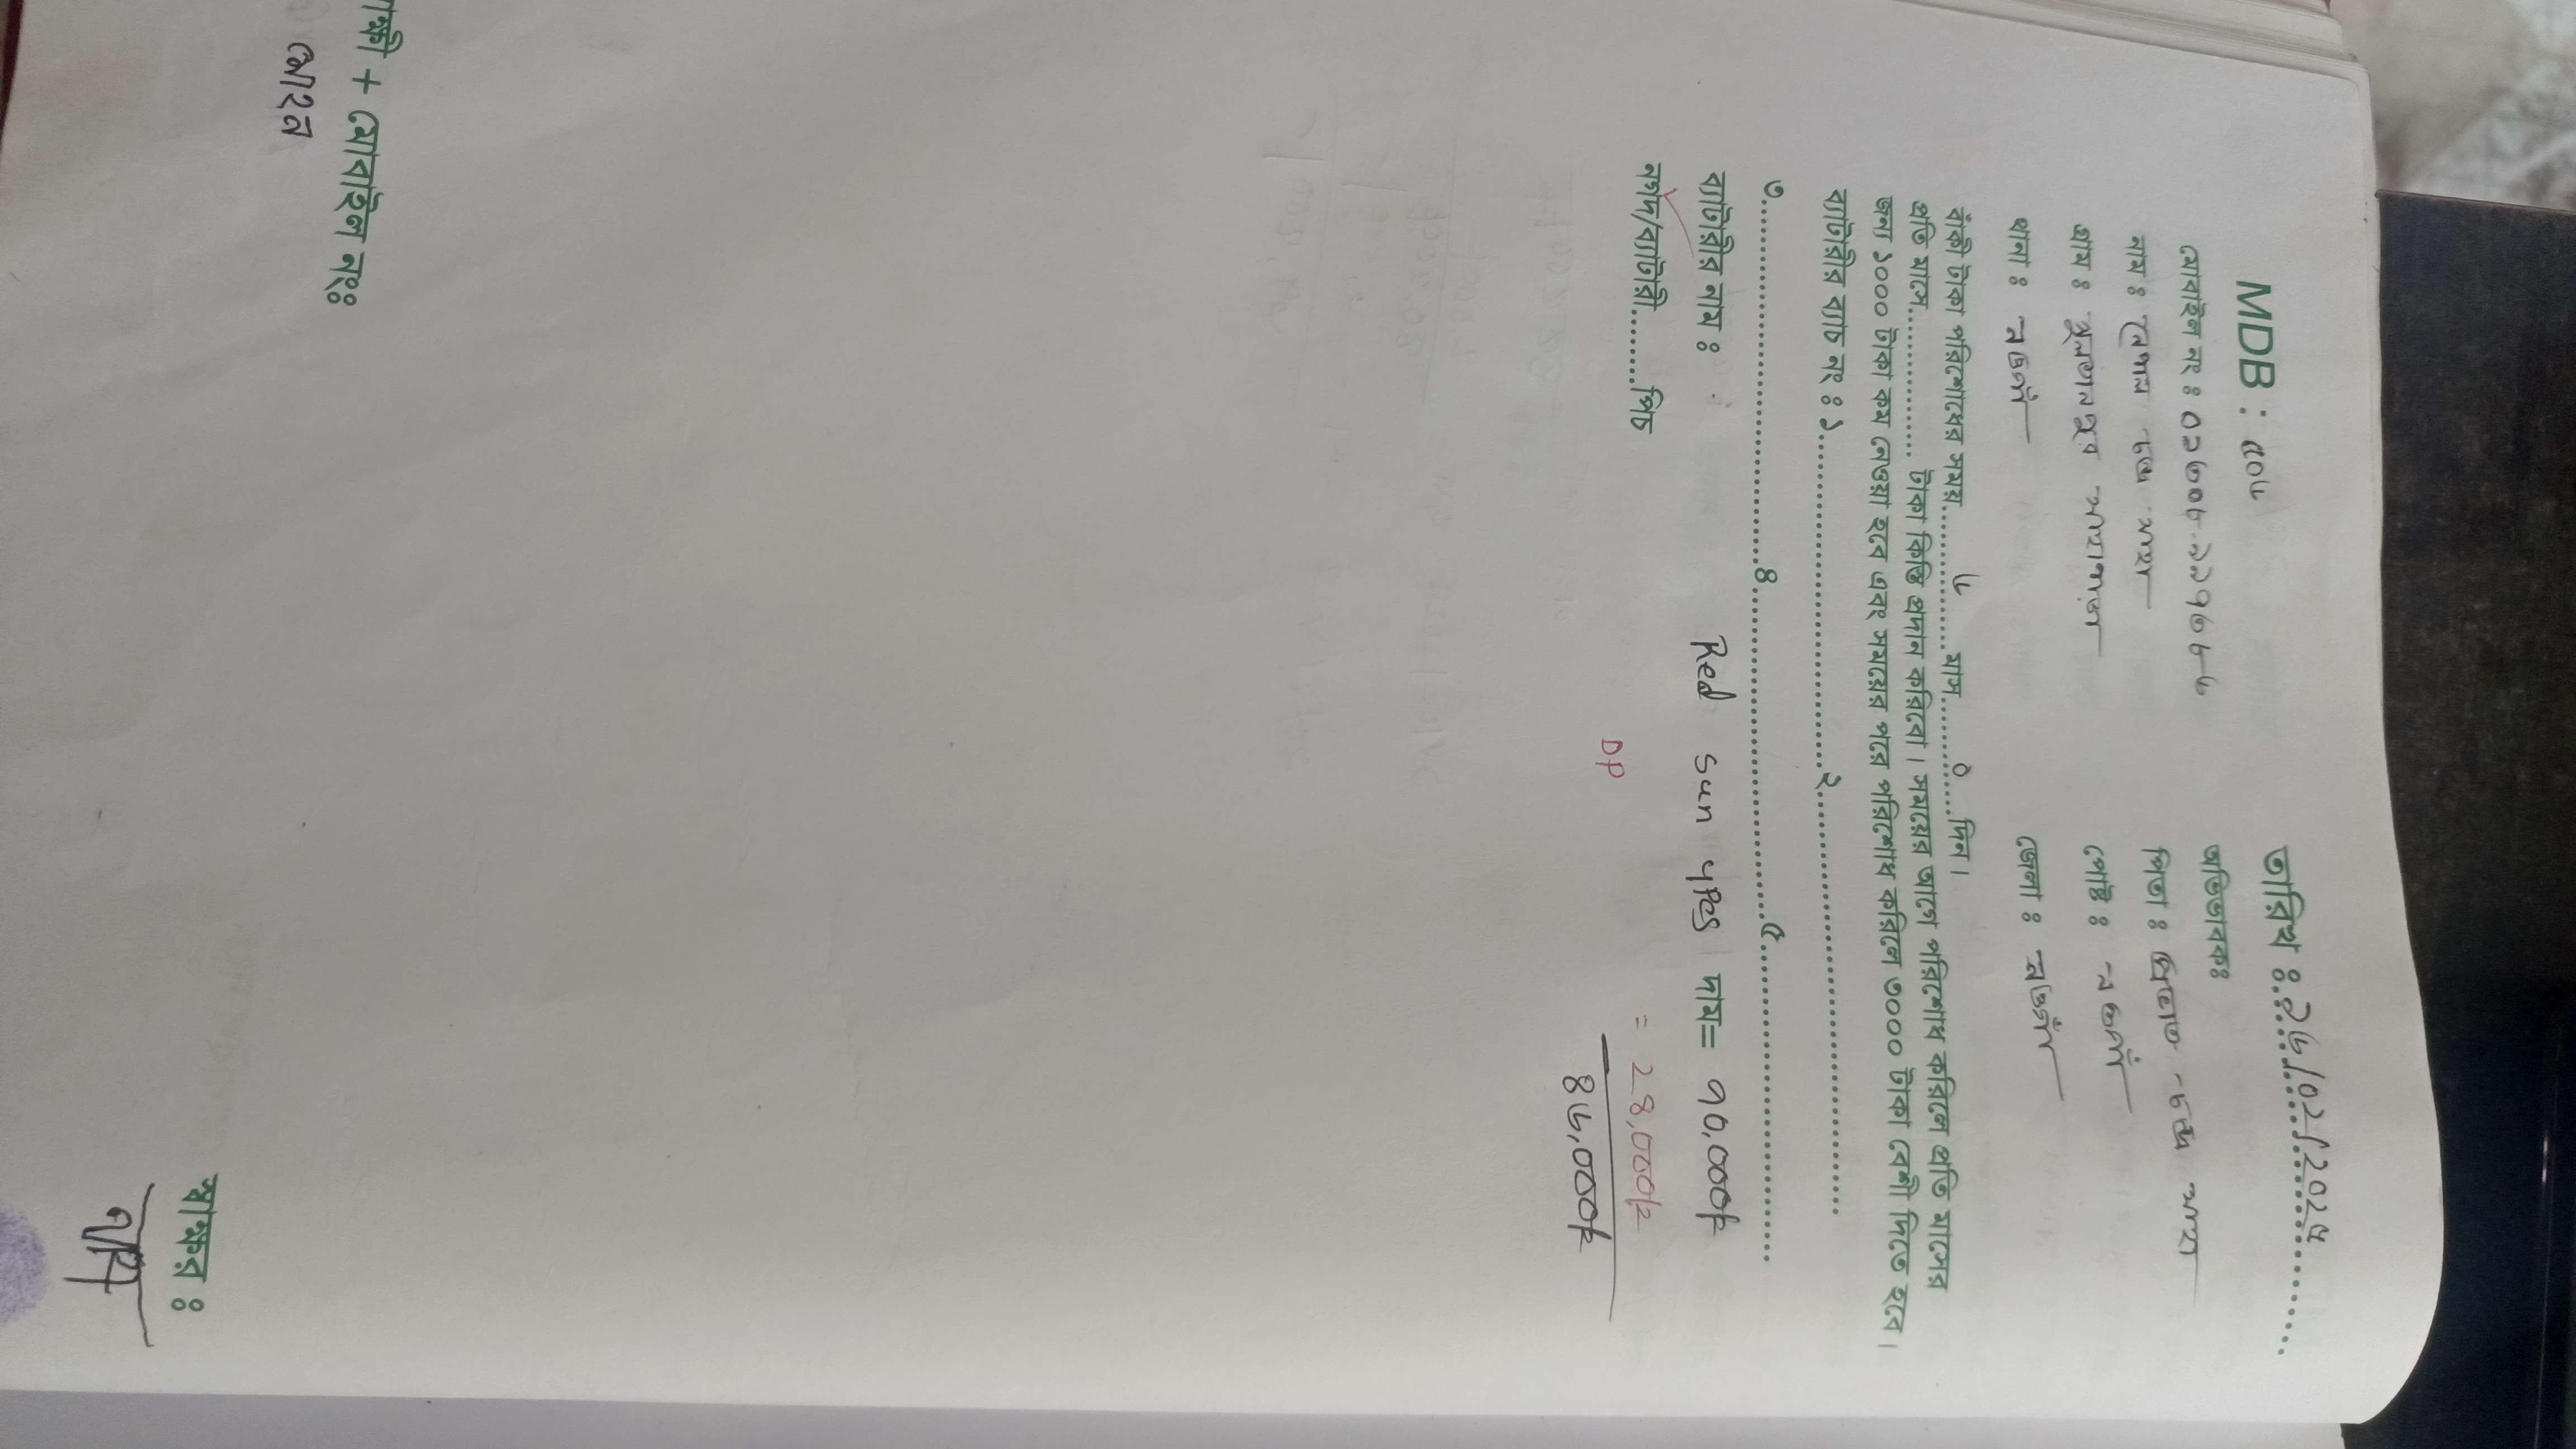 MDB : ৫০৬ তারিখ : ২৬/০২/২০২৫
মোবাইল নং : অভিভাবকঃ
নাম : নেপাল চন্দ্র সাহা পিতা : চন্দ্র সাহা
গ্রাম : সাহাপাড়া পোষ্ট : নওগাঁ
থানা : নওগাঁ জেলা : নওগাঁ
বাকী টাকা পরিশোধের সময় ৬ মাস ০ দিন।
প্রতি মাসে টাকা কিস্তি প্রদান করিবো। সময়ের আগে পরিশোধ করিলে প্রতি মাসের
জন্য ১০০০ টাকা কম নেওয়া হবে এবং সময়ের পরে পরিশোধ করিলে ৩০০০ টাকা বেশী দিতে হবে।
ব্যাটারীর ব্যাচ নং : ১ ২
৩ ৪ ৫
ব্যাটারীর নাম : Red sun 4Pcs দাম= ৭০,০০০/=
নগদ/ব্যাটারী........পিচ = ২৪,০০০/=
DP
৪৬,০০০/=
+ মোবাইল নংঃ
স্বাক্ষর ঃ